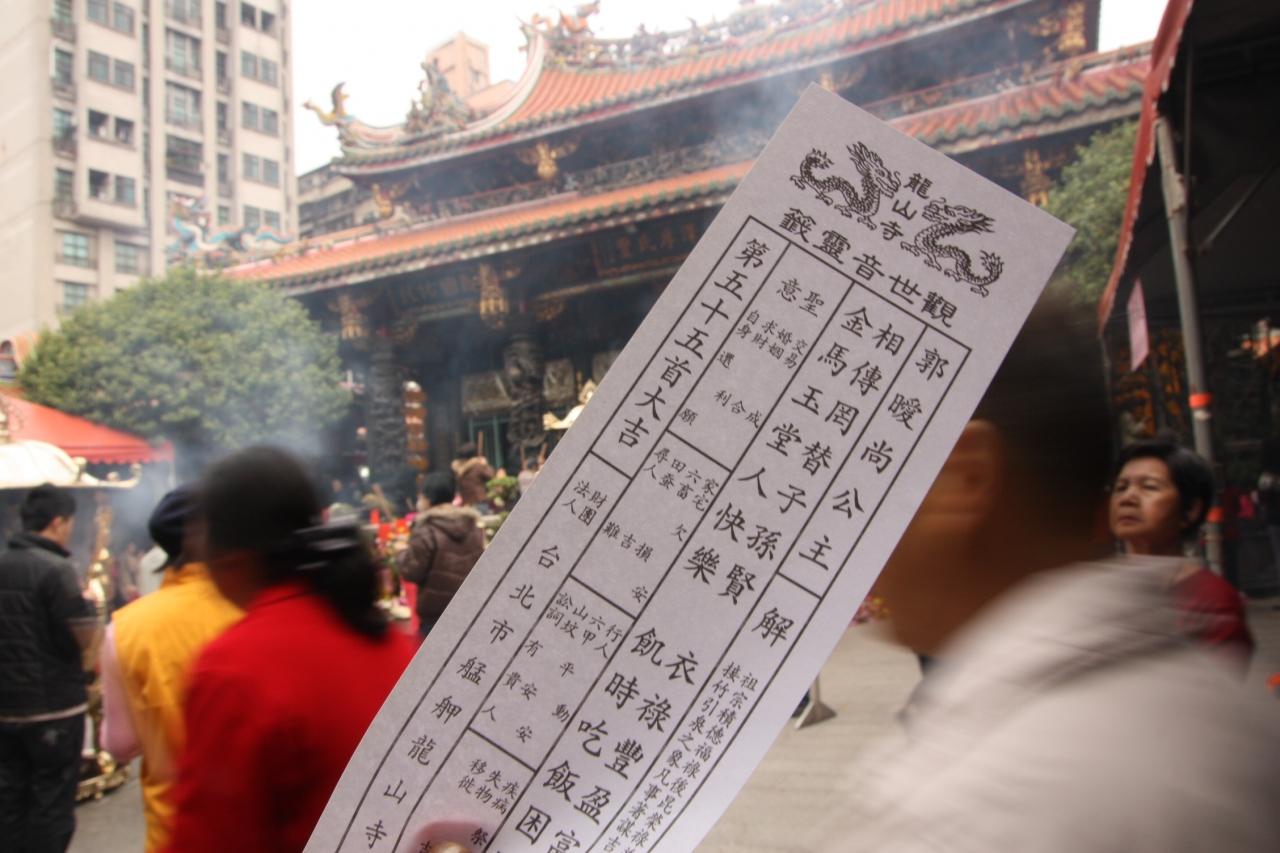 龍山寺
觀世音靈籤
郭曖尚公主
解
祖宗積德福祿後昆榮祿
接竹引泉之象凡事著謀吉
相傳罔替子孫賢 衣祿豐盈富
金馬玉堂人快樂 飢時吃飯困
聖意
交易成
婚姻合
求財利
自身還願
家宅安
六畜欠損
田蚕吉
尋人難
行人動
六甲平安
山坟安
訟詞有貴人
疾病
失物
移徙
第五十五首大吉
財團法人台北市艋舺龍山寺